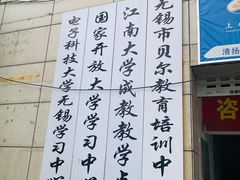 无锡市贝尔教育培训中
江南大学成教教学点
国家开放大学学习中
电子科技大学无锡学习中
上
清扬
咨